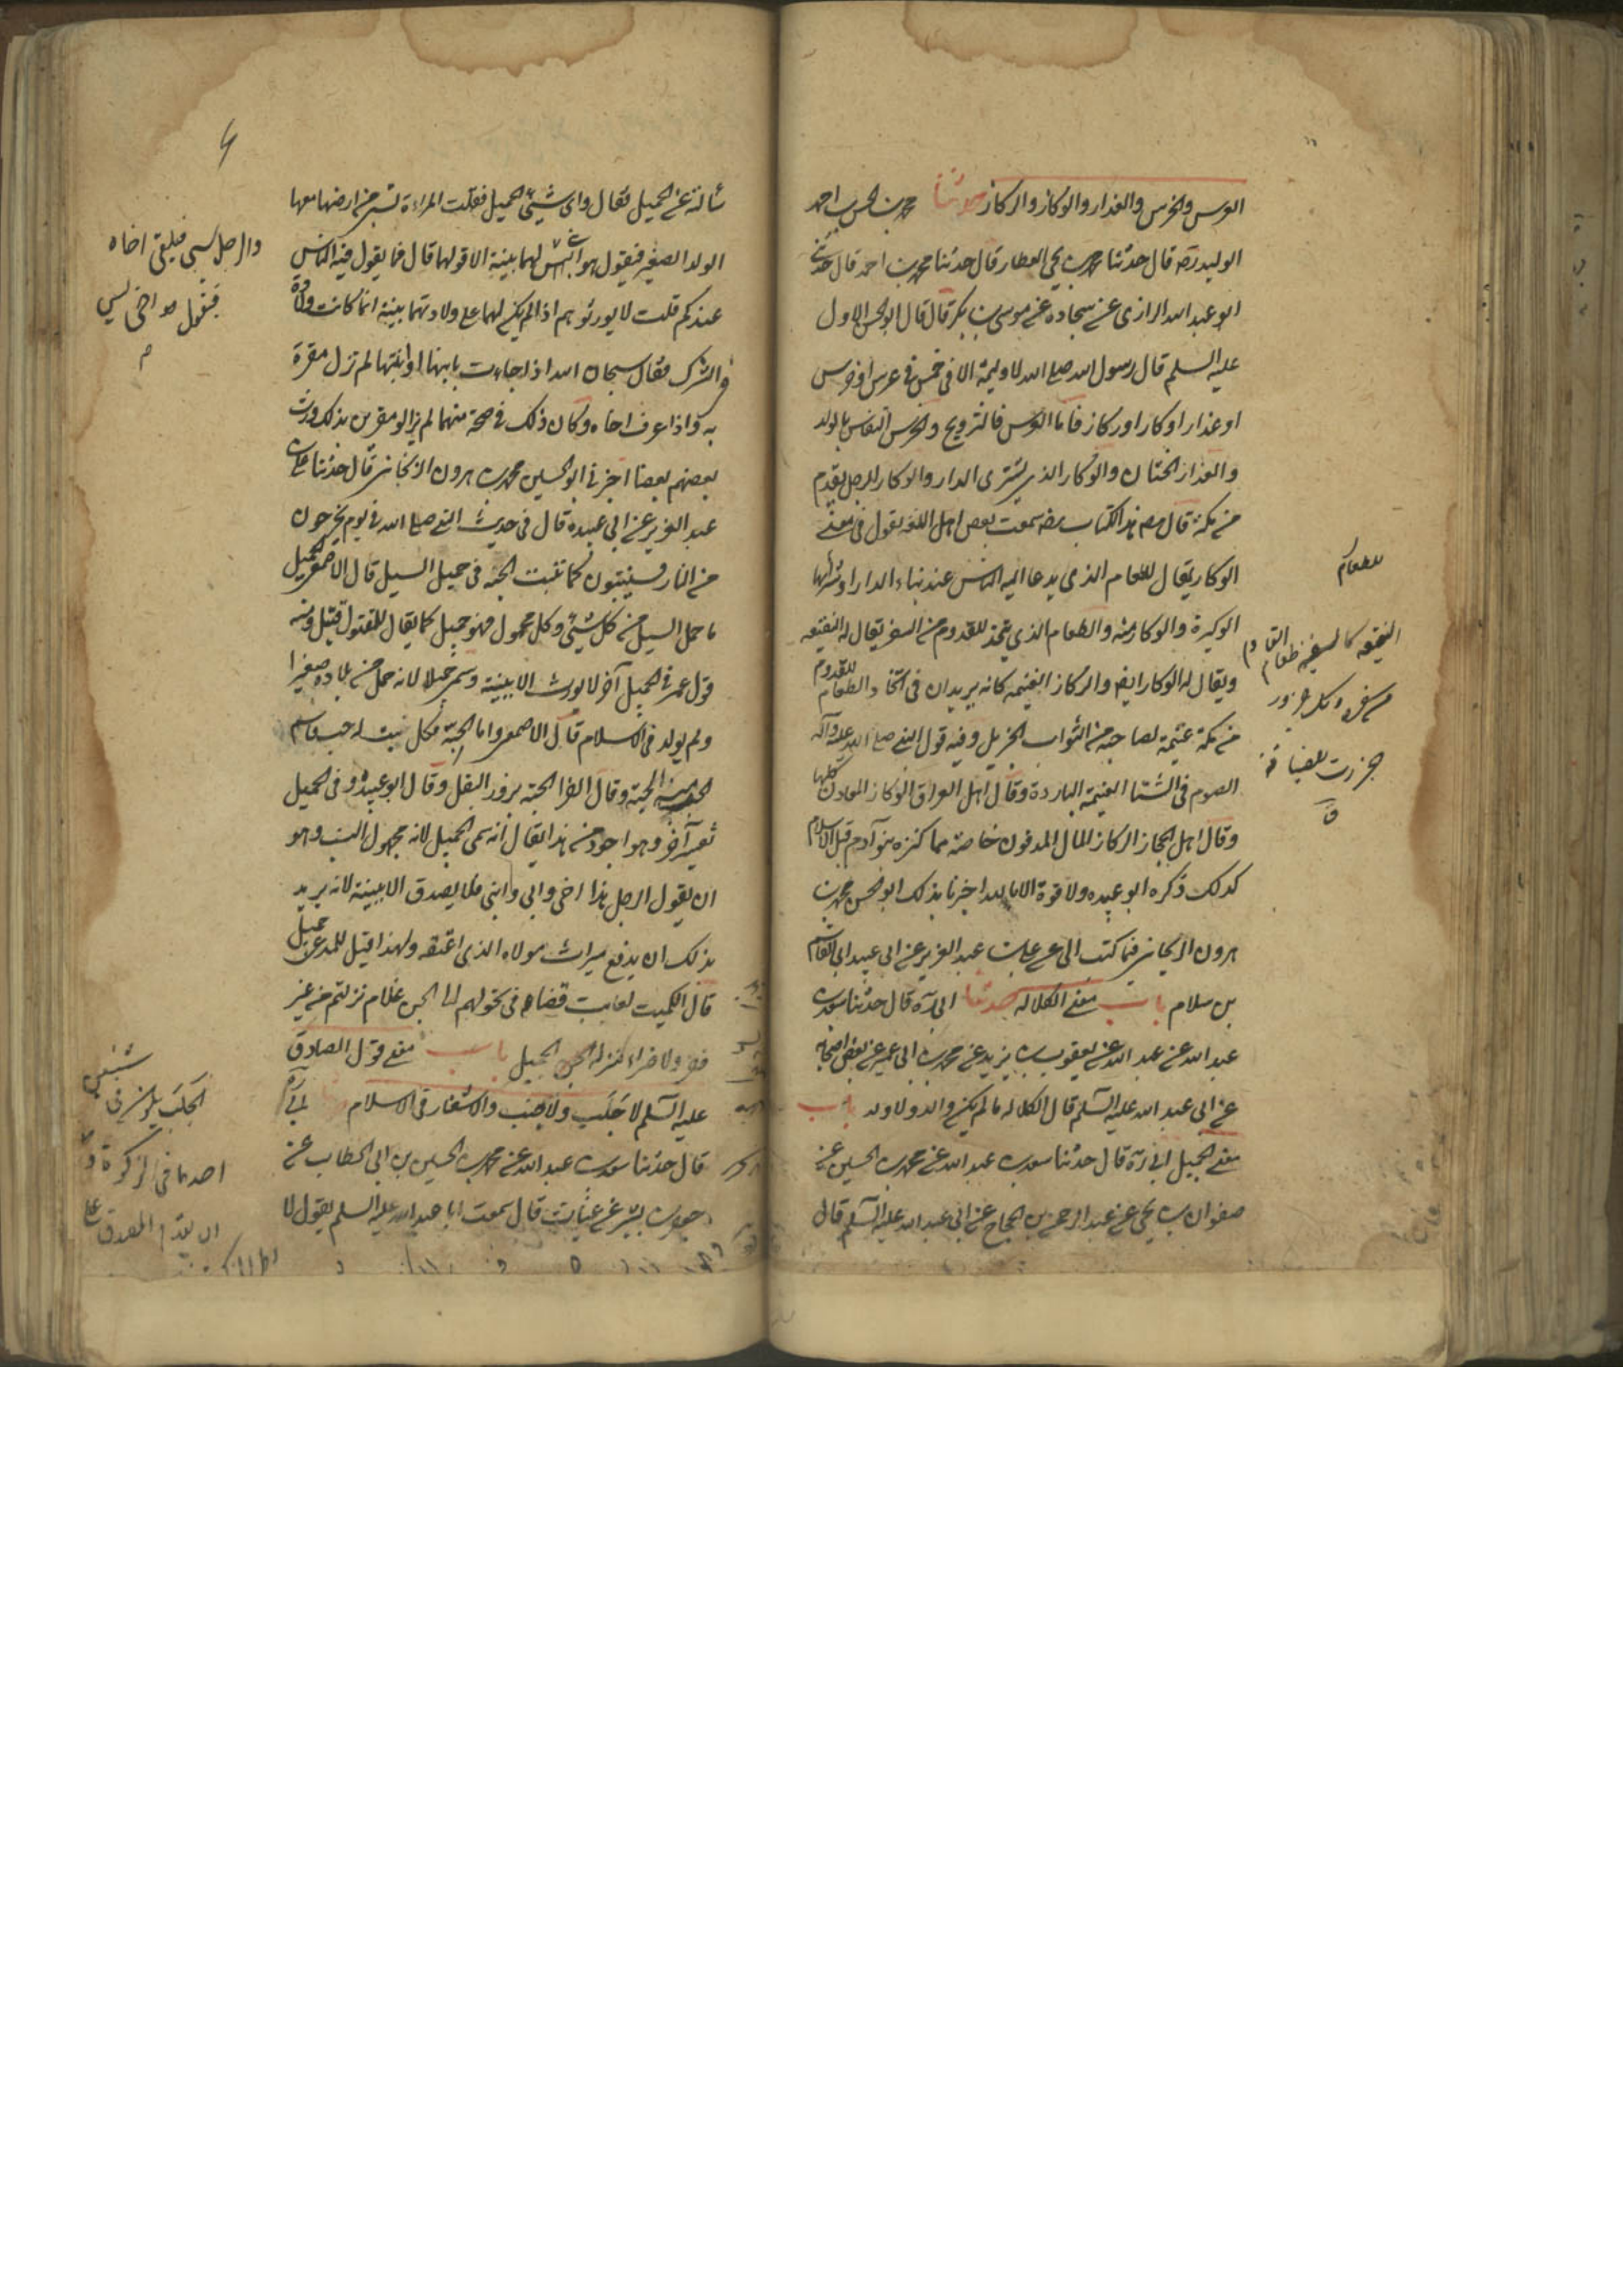 العرس والخرس والعذار والوكاز والركاز حدثنا محمد بن الحسن بن احمد
الوليد رضه قال حدثنا محمد بن يحيى العطار قال حدثنا محمد بن احمد قال حدثني
ابو عبد الله الرازى عن سجاده عن موسى بن بكر قال قال ابو الحسن الاول
عليه السلم قال رسول الله صلى الله لا وليمة الا فى خمس فى عرس او خرس
او عذار او وكار او ركاز فاما العرس فالتزويج والخرس النفاس بالولد
والعذار الختان والوكار الذى يشترى الدار والوكار الرجل يقدم
من مكة قال مصه هذا الكتاب رضه سمعت بعض اهل اللغة يقول فى معنى
الوكار يقال للطعام الذى يدعا اليه الناس عند بناء الدار او شرائها
الوكيرة والوكار منه والطعام الذى يتخذ للقدوم من السفر يقال له النقيعه
ويقال له الوكار ايضا والركاز الغنيمه كانه يريد ان فى اتخاذ الطعام للقدوم
من مكة غنيمة لصاحبه من الثواب الجزيل وفيه قول النبى صلى الله عليه وآله
الصوم فى الشتا الغنيمة الباردة وقال اهل العراق الركاز المعادن كلها
وقال اهل الحجاز الركاز المال المدفون خاصة مما كنزه بنو آدم قبل الاسلام
كذلك ذكره ابو عبيده ولا قوة الا بالله اخبرنا بذلك ابو الحسن محمد بن
هرون الزنجانى فيما كتب الى عن على بن عبد العزيز عن ابى عبيد ابى القاسم
بن سلام باب معنى الكلاله حدثنا ابى ره قال حدثنا سعد بن
عبد الله عن عبد الله عن يعقوب بن يزيد عن محمد بن ابى عمير عن بعض اصحابه
عن ابى عبد الله عليه السلم قال الكلاله ما لم يكن والد ولا ولد باب
معنى الحميل ابى ره قال حدثنا سعد بن عبد الله عن محمد بن الحسين عن
صفوان بن يحيى عن عبد الرحمن بن الحجاج عن ابى عبد الله عليه السلم قال
للطعام
النقيعه كالسفينه طعام القادم
من سفره وكل جزور
جزرت للضيافة
ق
سألته عن الحميل فقال واى شيئ الحميل فقلت المراءة تسبى من ارضها معها
الولد الصغير فيقول هو ابنى ليس لهما بينة الا قولهما قال فما يقول فيه الناس
عندكم قلت لا يورثوهم اذا لم يكن لهما على ولادتهما بينة انما كانت ولادة
فى الشرك فقال سبحان الله اذا جاءت بابنها او ابنتها لم تزل مقرة
به واذا عرف اخاه وكان ذلك فى صحة منهما لم يزالو مقرين بذلك ورث
بعضهم بعضا اخبرنى ابو الحسين محمد بن هرون الزنجانى قال حدثنا على بن
عبد العزيز عن ابى عبيده قال فى حديث النبى صلى الله فى يوم يخرجون
من النار فينبتون كما تنبت الحبة فى حميل السيل قال الاصمعى الحميل
ما حمل السيل من كل شيئ وكل محمول فهو حميل كما يقال للمقتول قتيل ومنه
قول عمر فى الحميل آخر لا يورث الا ببينة وسمى حميلا لانه حمل من بلاده صغيرا
ولم يولد فى الاسلام قال الاصمعى واما الحبة فكل نبت له حب فاسم
الحب منه الحبة وقال الفرا الحبة بزور البقل وقال ابو عبيده وفى الحميل
تفسير آخر وهو اجود من هذا يقال انه سمى الحميل لانه مجهول النسب وهو
ان يقول الرجل هذا اخى وابى وابنى فلا يصدق الا ببينة لانه يريد
بذلك ان يدفع ميراث مولاه الذى اعتقه ولهذا قيل للمدعى حميل
قال الكميت يعاتب قضاعة فى تحولهم الى اليمن علام نزلتم من غير
فقر ولا ضراء منزلة الحميل باب معنى قول الصادق
عليه السلم لا جلب ولا جنب ولا شغار فى الاسلام ابى ره
قال حدثنا سعد بن عبد الله عن محمد بن الحسين بن ابى الخطاب عن
جعفر بن بشير عن غياث قال سمعت ابا عبد الله عليه السلم يقول لا
والرجل يسبى فيلقى اخاه
فيقول هو اخى ليس
م
الجلب يكون فى شيئين
احدهما فى الزكوة
ان يقدم المصدق على